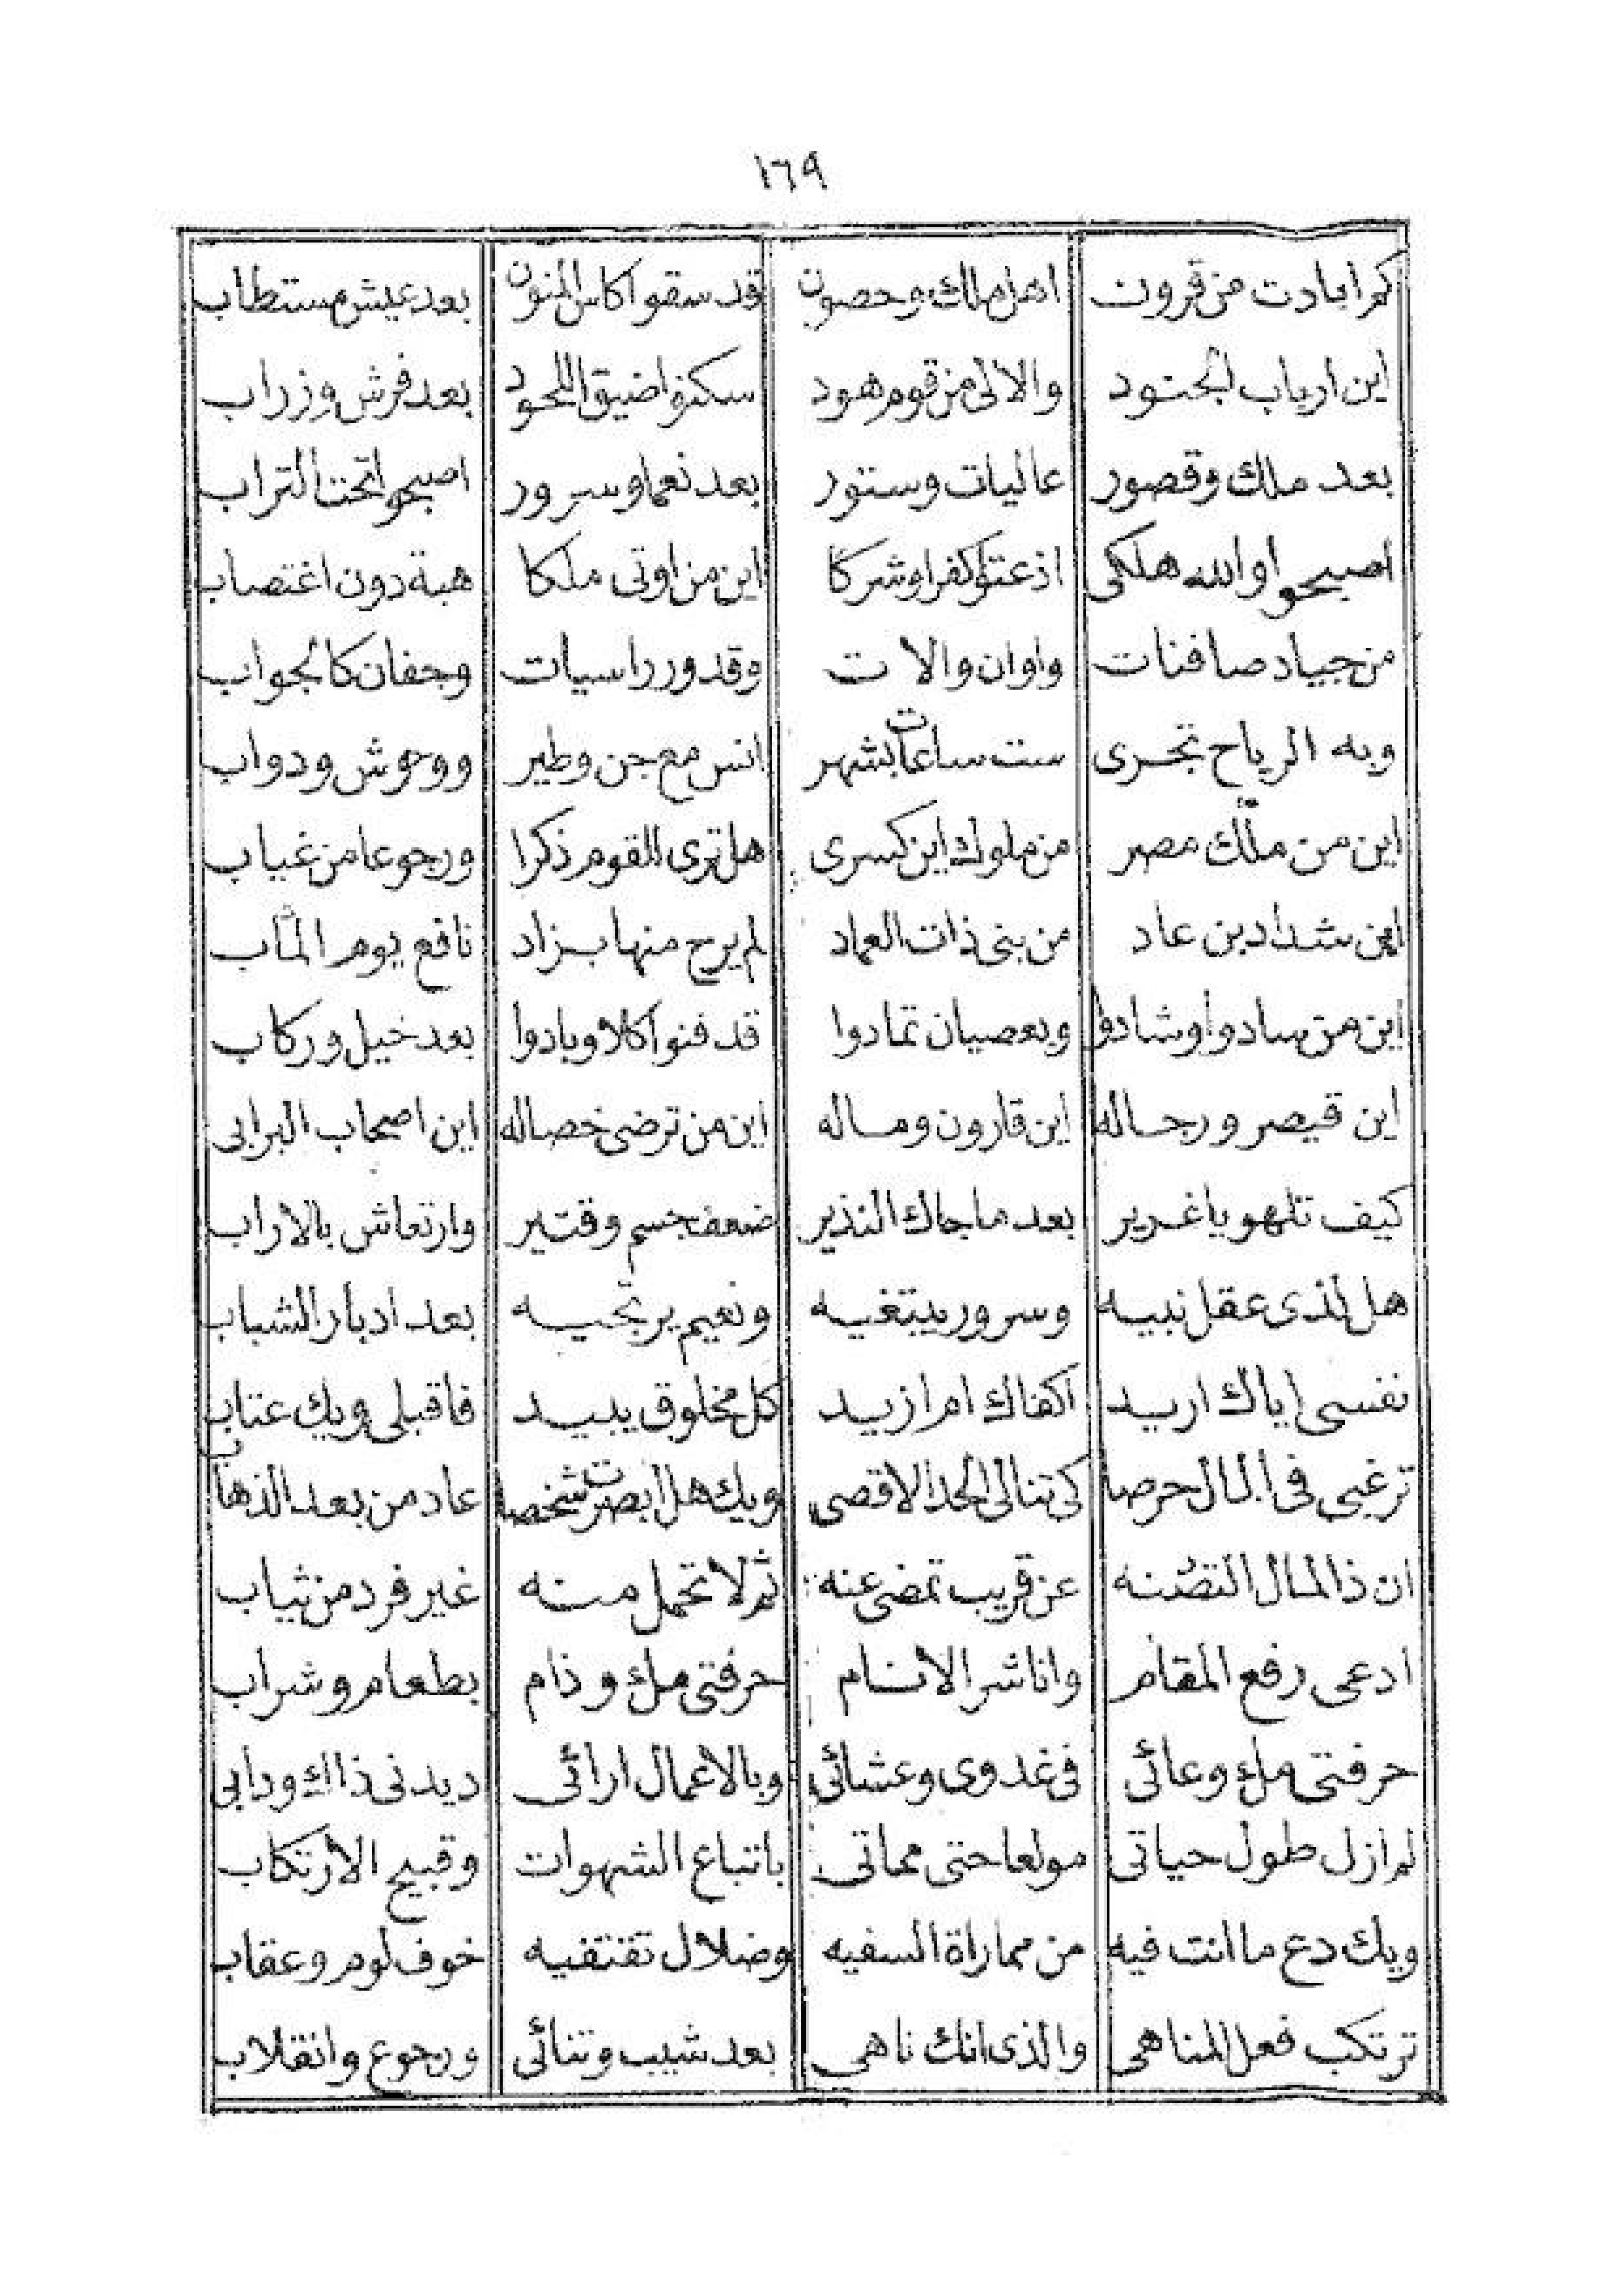 ١٦٩
كم ابادت من قرون اهل ملك وحصون قد سقوا كاس المنون بعد عيش مستطاب
اين ارباب الجنود والالى من قوم هود سكنوا ضيق اللحود بعد فرش وزراب
بعد ملك وقصور عاليات وستور بعد نعما وسرور اصبحوا تحت التراب
اصبحوا والله هلكى اذ عتوا كفرا وشركا اين من اوتى ملكا هبة دون اغتصاب
من جياد صافنات واوان والات وقدور راسيات وجفان كالجواب
وبه الرياح تجرى ست ساعات بشهر انس مع جن وطير ووحوش ودواب
اين من ملك مصر من ملوك اين كسرى هل ترى للقوم ذكرا ورجوعا من غياب
اين شداد بن عاد من بنى ذات العماد لم يرح منها بزاد نافع يوم المآب
اين من سادوا وشادوا وبعصيان تمادوا قد فنوا كلا وبادوا بعد خيل وركاب
اين قيصر ورجاله اين قارون وماله اين من ترضى خصاله اين اصحاب البرابى
كيف تلهو يا غرير بعد ما جاك النذير ضعف جسم وقتير وارتعاش بالاراب
هل لذى عقل نبيه وسرور يبتغيه ونعيم يرتجيه بعد ادبار الشباب
نفسى اياك اريد اكفاك ام ازيد كل مخلوق يبيد فاقبلى ويك عتاب
ترغبى فى المال حرصا كى تنالى الحد الاقصى ويك هل ابصرت شخصا عاد من بعد الذهاب
ان ذا المال التصنه عن قريب تمضى عنه ثم لا تحمل منه غير فرد من ثياب
ادعى رفع المقام وانا شر الانام حرفتى ملء وذام بطعام وشراب
حرفتى ملء وعائى فى غدوى وعشائى وبالاعمال ارائى ديدنى ذاك ودابى
لم ازل طول حياتى مولعا حتى مماتى باتباع الشهوات وقبيح الارتكاب
ويك دع ما انت فيه من مماراة السفيه وضلال تقتفيه خوف لوم وعقاب
ترتكب فعل المناهى والذى انك ناهى بعد شيب وتنائى ورجوع وانقلاب